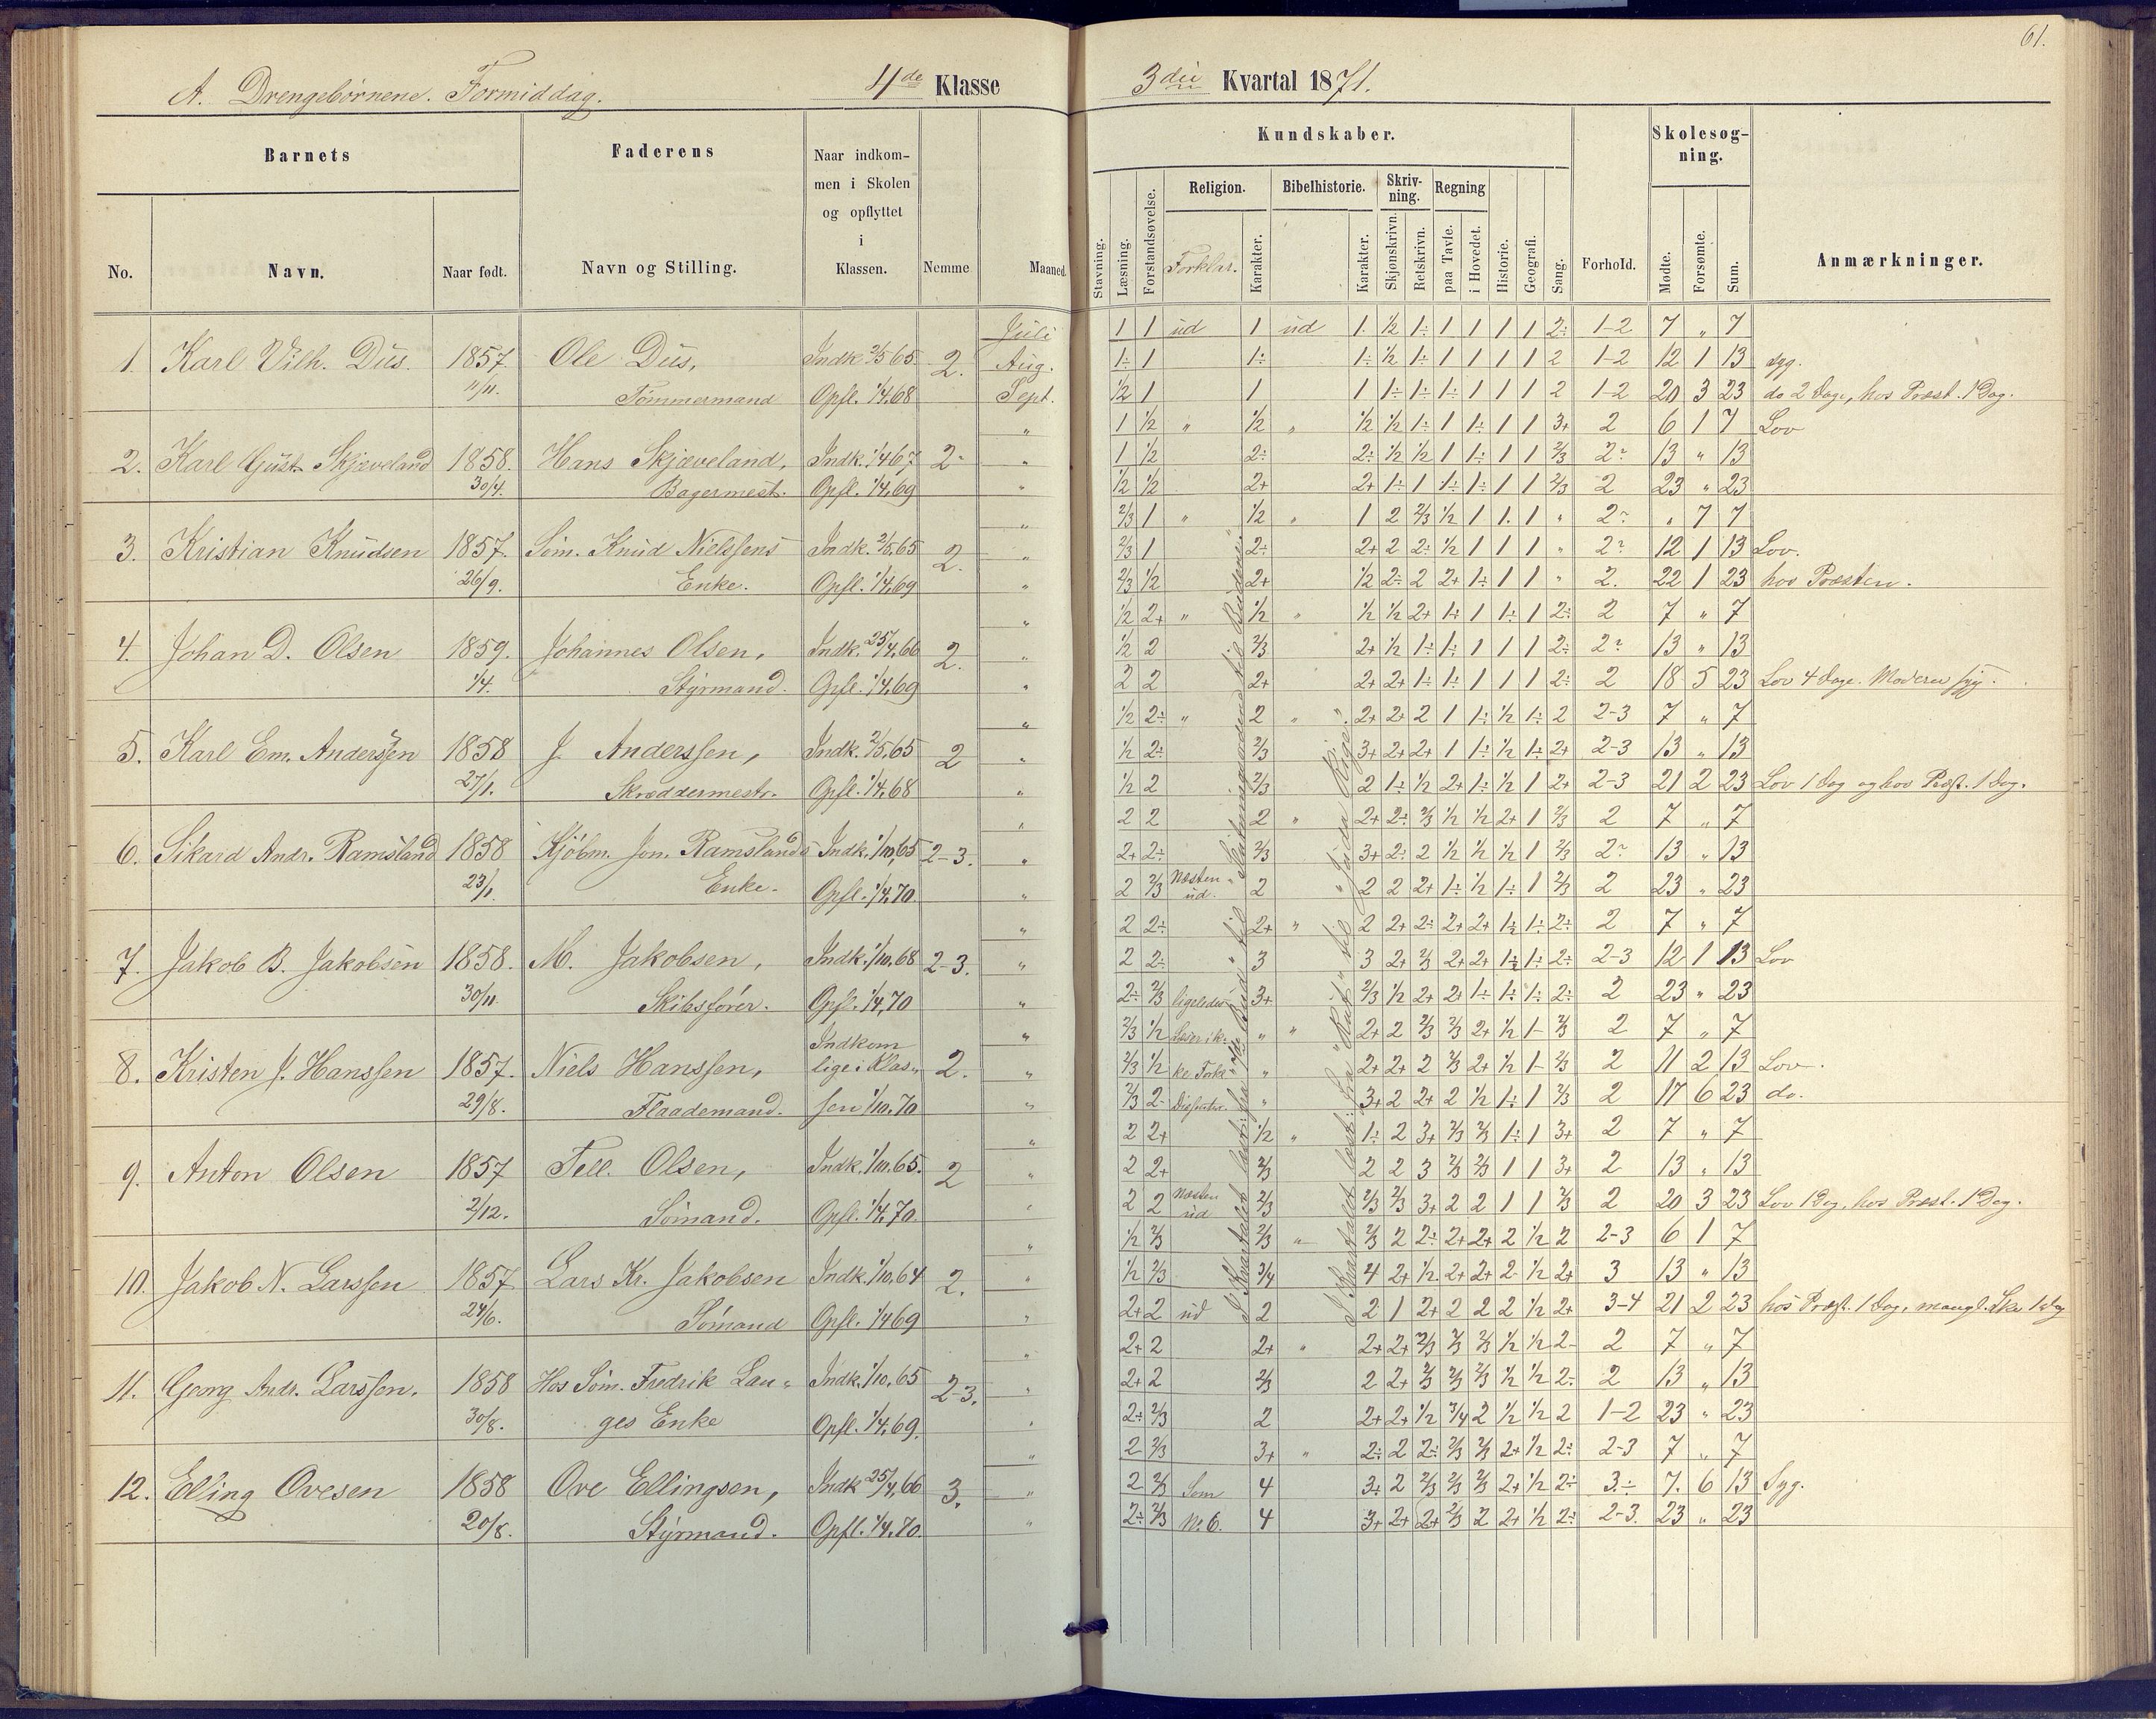 61.
A. Drengebørnene. Formiddag. 4de Klasse 3die Kvartal 1871.
Barnets Faderens Naar indkommen i Skolen og opflyttet i Klassen. Nemme Maaned.
No. Navn. Naar født. Navn og Stilling.
Kundskaber. Skolesøgning.
Stavning. Læsning. Forstandsøvelse. Religion. Forklar. Karakter. Bibelhistorie. Karakter. Skrivning. Skjønskrivn. Retskrivn. Regning paa Tavle. i Hovedet. Historie. Geografi. Sang. Forhold. Mødte. Forsømte. Sum. Anmærkninger.
Juli 1 1 ud 1 ud 1. ½ 1÷ 1 1 1 1 2÷ 1-2 7 " 7
1. Karl Vilh. Dus. 1857. Ole Dus, Indk. 2/5 65 2. Aug. 1÷ 1 1÷ 1÷ ½ 1÷ 1 1 1 1 2 1-2 12 1 13 syg.
11/11. Tømmermand Opfl. 1/4 68 Sept. ½ 1 1 1 1÷ 1÷ 1÷ 1 1 1 2 1-2 20 3 23 do 2 Dage, hos Præst. 1 Dag.
" 1 ½ " ½ " ½ ½ 1÷ 1 1÷ 1 1 3+ 2 6 1 7 Lov
2. Karl Gust. Skjæveland 1858. Hans Skjæveland, Indk. 1/4 67 2÷ " 1 ½ 2÷ 2÷ ½ ½ 1 1÷ 1 1 2/3 2? 13 " 13
30/4. Bagermest. Opfl. 1/4.69 " ½ ½ 2+ 2+ 1÷ 1 1÷ 1÷ 1 1 2/3 2 23 " 23
" 2/3 1 " ½ " 1 2 2/3 ½ 1 1. 1 " 2? " 7 7
3. Kristian Knudsen 1857. Søm. Knud Nielssens Indk. 2/5.65 2. " 2/3 1 2÷ 2+ 2 2÷ ½ 1 1 1 " 2? 12 1 13 Lov.
26/9. Enke. Opfl. 1/4.69 " 2/3 ½ 2+ ½ 2÷ 2 2+ 1÷ 1 1 " 2. 22 1 23 hos Præsten.
" ½ 2+ " ½ " ½ ½ 2+ 1÷ 1 1÷ 1 2÷ 2 7 " 7
4. Johan D. Olsen 1859. Johannes Olsen, Indk. 25/4.66 2. " ½ 2 2/3 2+ ½ 1÷ 1÷ 1 1 1 2÷ 2? 13 " 13
1/4. Styrmand. Opfl. 1/4.69 " 2 2 2+ 2+ 2+ 1÷ 1÷ 1 1 1 2÷ 2 18 5 23 Lov 4 Dage. Moderen syg.
" ½ 2÷ " 2 " 2+ 2+ 2 1 1÷ ½ 1÷ 2 2-3 7 " 7
5. Karl Em. Anderssen 1858 J. Anderssen, Indk. 2/5.65 2 " ½ 2÷ 2/3 3+ 2+ 2+ 1 1÷ ½ 1÷ 2+ 2-3 13 " 13
27/1. Skræddermestr. Opfl. 1/4.68 " ½ 2 2/3 2 1÷ ½ 2+ 1÷ ½ 1 2+ 2-3 21 2 23 Lov 1 Dag og hos Præst. 1 Dag.
" 2 2 2 " 2+ 2÷ 2/3 ½ ½ 2+ 1 2/3 2 7 " 7
6. Sikard Andr. Ramsland 1858 Kjøbm. Jon. Ramslands Indk. 1/10.65 2-3. " 2+ 2÷ 2/3 3+ 2÷ 2 ½ ½ ½ 1 2/3 2? 13 " 13
23/1. Enke. Opfl. 1/4.70. " 2 2/3 Næsten ud. 2 2 2 2+ 1÷ ½ 1÷ 1 2/3 2 23 " 23
" 2 2÷ 2+ " 2 2+ 2÷ 2+ 2+ 1½ 1÷ 2÷ 2 7 " 7
7. Jakob B. Jakobsen 1858. M. Jakobsen, Indk. 1/10.68 2-3. " 2 2÷ 3 3 2+ 2/3 2+ 2+ 1½ 1÷ 2÷ 2-3 12 1 13 Lov
30/11. Skibsfører. Opfl. 1/4.70 " 2÷ 2/3 ligeledes 3+ 2/3 ½ 2+ 2+ 1÷ 1÷ 1÷ 2÷ 2 23 " 23
Indkom " 2/3 ½ Læser ik- " " 2+ 2 2/3 2/3 2+ ½ 1- 2/3 2 7 " 7
8. Kristen J. Hanssen 1857. Niels Hanssen, lige i Klas- 2. " 2/3 ½ ke Fork " 2+ 2+ 2 2/3 2+ ½ 1- 2/3 2 11 2 13 Lov.
29/8. Flaademand. sen 1/10.70 " 2/3 2- Dissenter. " 3+ 2 2+ 2 ½ 1÷ 1 2/3 2 17 6 23 do.
" 2 2+ ½ " 1÷ 2 3+ 2/3 2/3 1÷ 1 3+ 2 7 " 7
9. Anton Olsen 1857 Tell. Olsen, Indk. 1/10.65. 2 " 2 2+ 2/3 2 2 3 2/3 2/3 1 1 3+ 2 13 " 13
2/12. Sømand. Opfl. 1/4.70. " 2 2 Næsten ud 2/3 2/3 2/3 3+ 2 2 1 1 2/3 2 20 3 23 Lov 1 Dag, hos Præst. 1 Dag.
" ½ 2/3 2/3 " 2/3 2 2÷ 2+ 2+ 2 ½ 2 2-3 6 1 7
10. Jakob N. Larssen 1857 Lars Kr. Jakobsen Indk. 1/10.64 2. " ½ 2/3 3/4 4 2+ ½. 2+ 2+ 2 ½ 2+ 3 13 " 13
24/6. Sømand Opfl. 1/4 69 " 2+ 2 ud 2 2 1 2+ 2 2 2 ½ 2+ 3-4 21 2 23 hos Præst. 1 Dag, mangl. Sko 1 Dag
" 2+ 2 2+ " 2+ 2+ 2/3 2/3 2/3 ½ ½ 2- 2 7 " 7
11. Georg Andr. Larssen. 1858 Hos Søm. Fredrik Lan- Indk. 1/10.65 2-3. " 2+ 2 2/3 2 2+ 2/3 2/3 2/3 ½ ½ 2÷ 2 13 " 13
30/8. ges Enke Opfl. 1/4.69. " 2÷ 2/3 2 2+ 2+ ½ 3/4 2 ½ ½ 2 1-2 23 " 23
" 2 2/3 3+ " 2÷ 2 2÷ 2/3 2/3 2+ ½ 2÷ 2-3 7 " 7
12. Elling Ovesen 1858 Ove Ellingsen, Indk 25/4.66 3. " 2 2/3 Som 4 3+ 2 2/3 2/3 2/3 2+ ½ 2÷ 3÷ 7. 6 13 Syg.
20/8. Styrmand. Opfl. 1/4.70. " 2÷ 2/3 N. 6. 4 3+ 2+ 2+ 2/3 2 2+ ½ 2÷ 2-3. 23 " 23
I Kvartalet læst: fra
I Kvartalet læst: fra "Rut" til "Juda Rige".